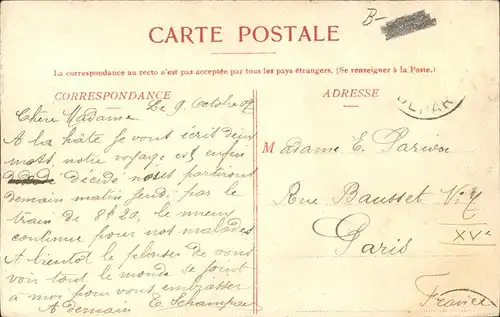 B-
CARTE POSTALE
La correspondance au recto n'est pas acceptée par tous les pays étrangers. (Se renseigner à la Poste.)
CORRESPONDANCE
Le 9 Octobre
Chère Madame
A la hâte je vous écrit deux
mots, notre voyage est enfin
décidé nous partirons
demain matin jeudi par le
train de 8h20, le mieux
continue pour nos malades
A bientot le plaisir de vous
voir tout le monde se joint
à moi pour vous embrasser
A demain E.
ADRESSE
DEPAR
Madame E.
Rue Bausset
Paris
XVe
France